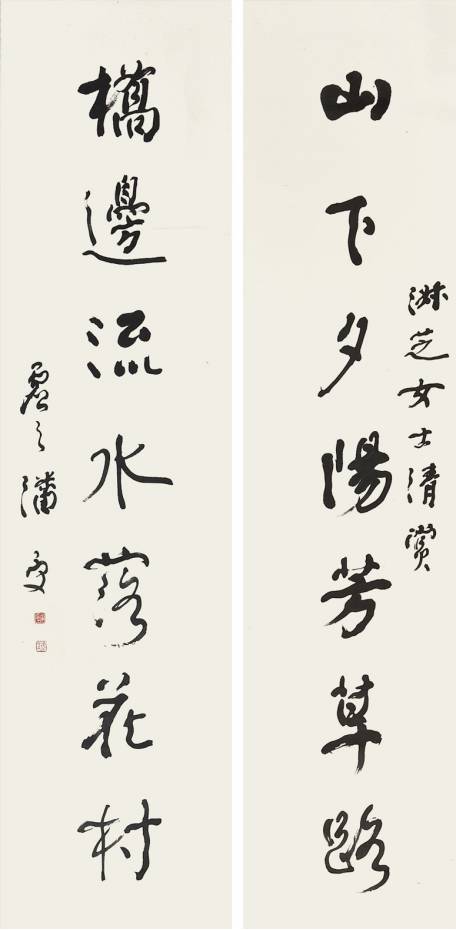 淑芝女士清賞
山下夕陽芳草路
橋邊流水落花村
虛之潘受